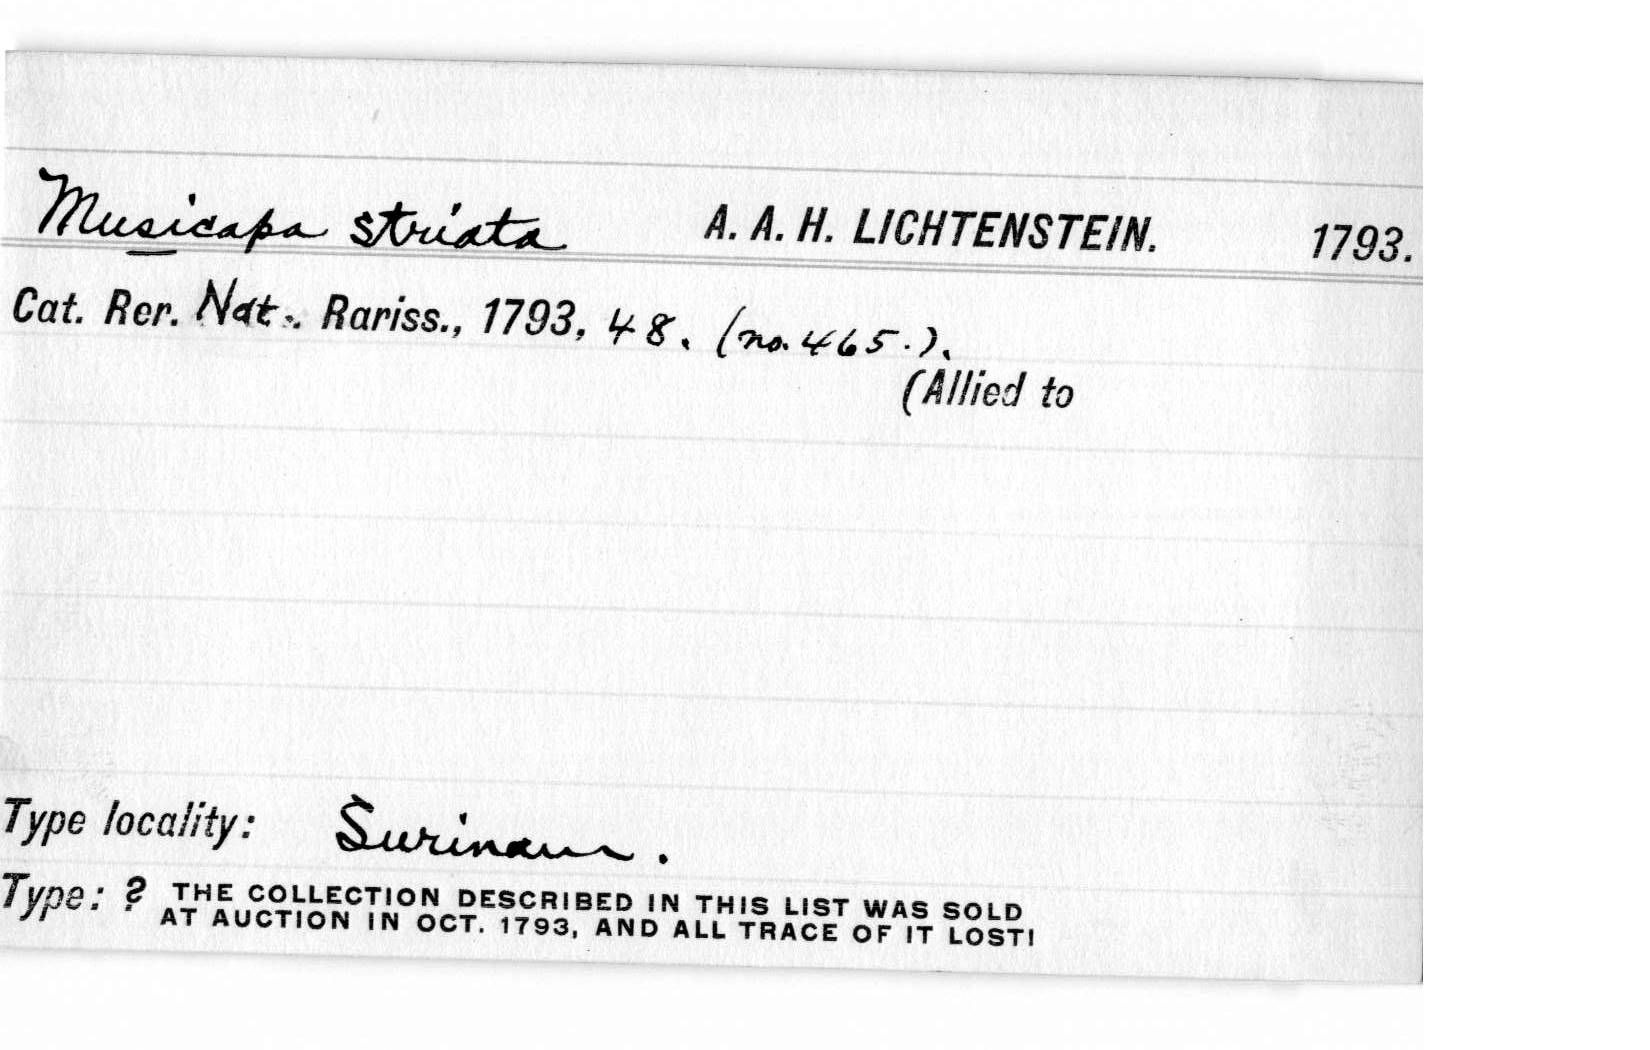 Musicapa striata A. A. H. LICHTENSTEIN. 1793.
Cat. Rer. Nat. Rariss., 1793, 48. (no. 465.).
(Allied to
Type locality: Surinam.
Type: ? THE COLLECTION DESCRIBED IN THIS LIST WAS SOLD
AT AUCTION IN OCT. 1793, AND ALL TRACE OF IT LOST!